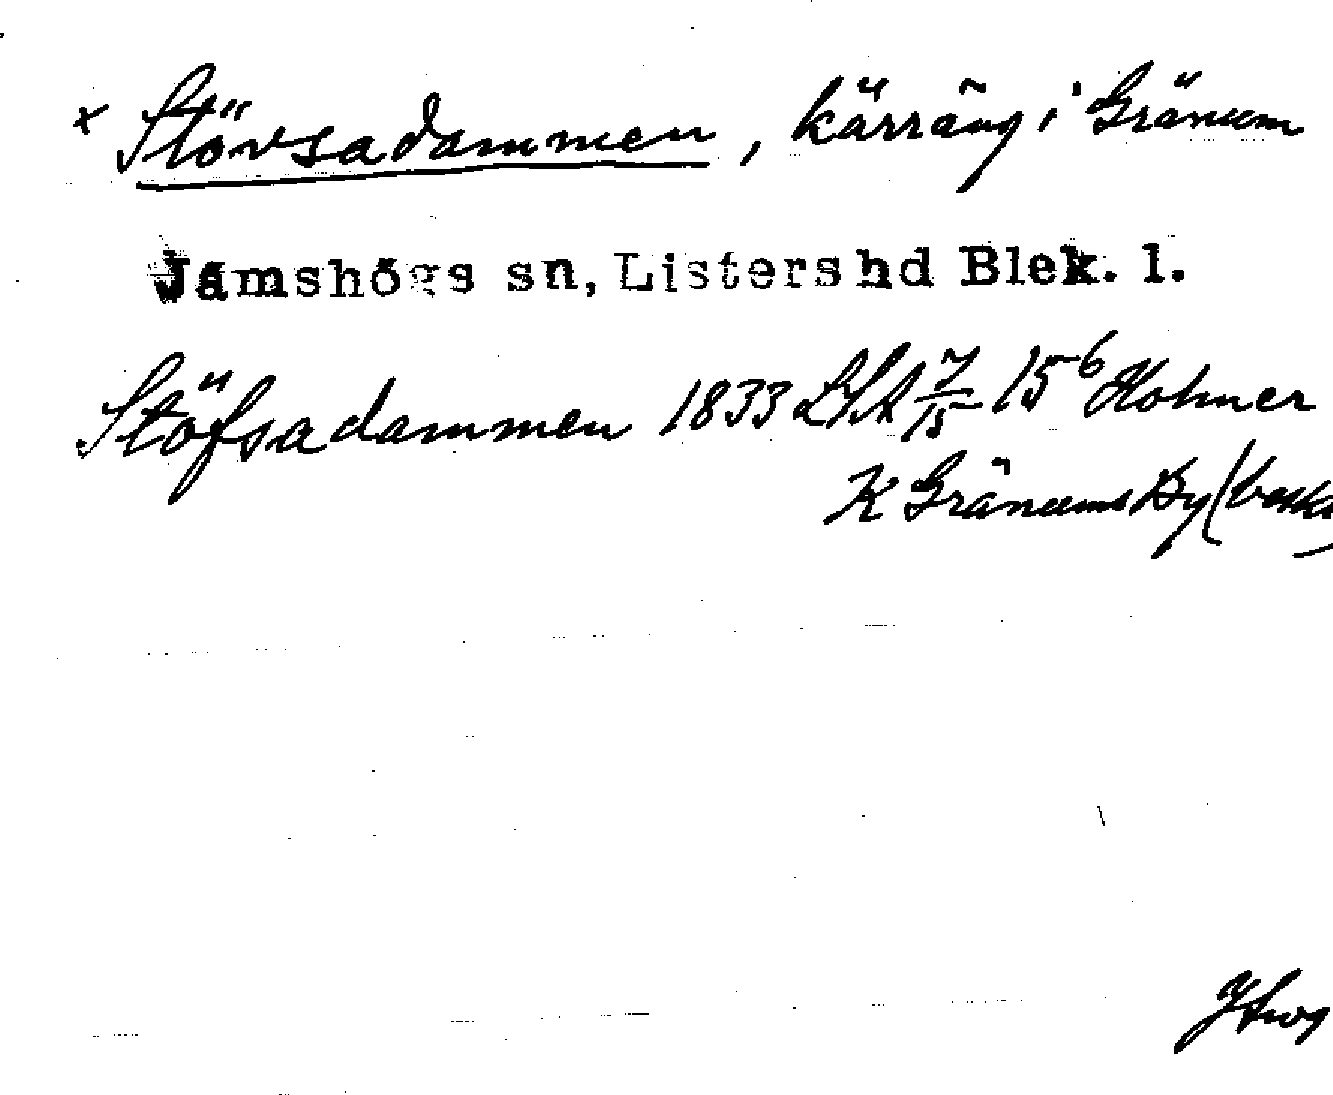 x Stövsadammen, kärräng i Gränum
Jämshögs sn, Listers hd Blek. l.
Stöfsadammen 1833 LSA 7/15 15⁶ Holmer
K Gränums By (besk